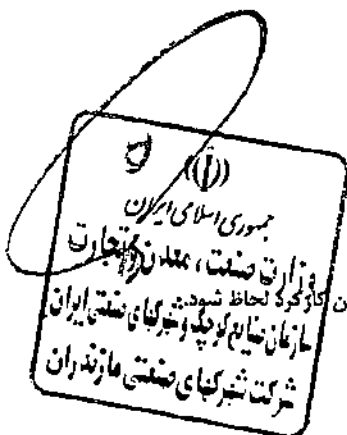 جمهوری اسلامی ایران
وزارت صنعت، معدن و تجارت
ن کارکرد لحاظ شود.
سازمان صنایع کوچک و شهرکهای صنعتی ایران
شرکت شهرکهای صنعتی مازندران